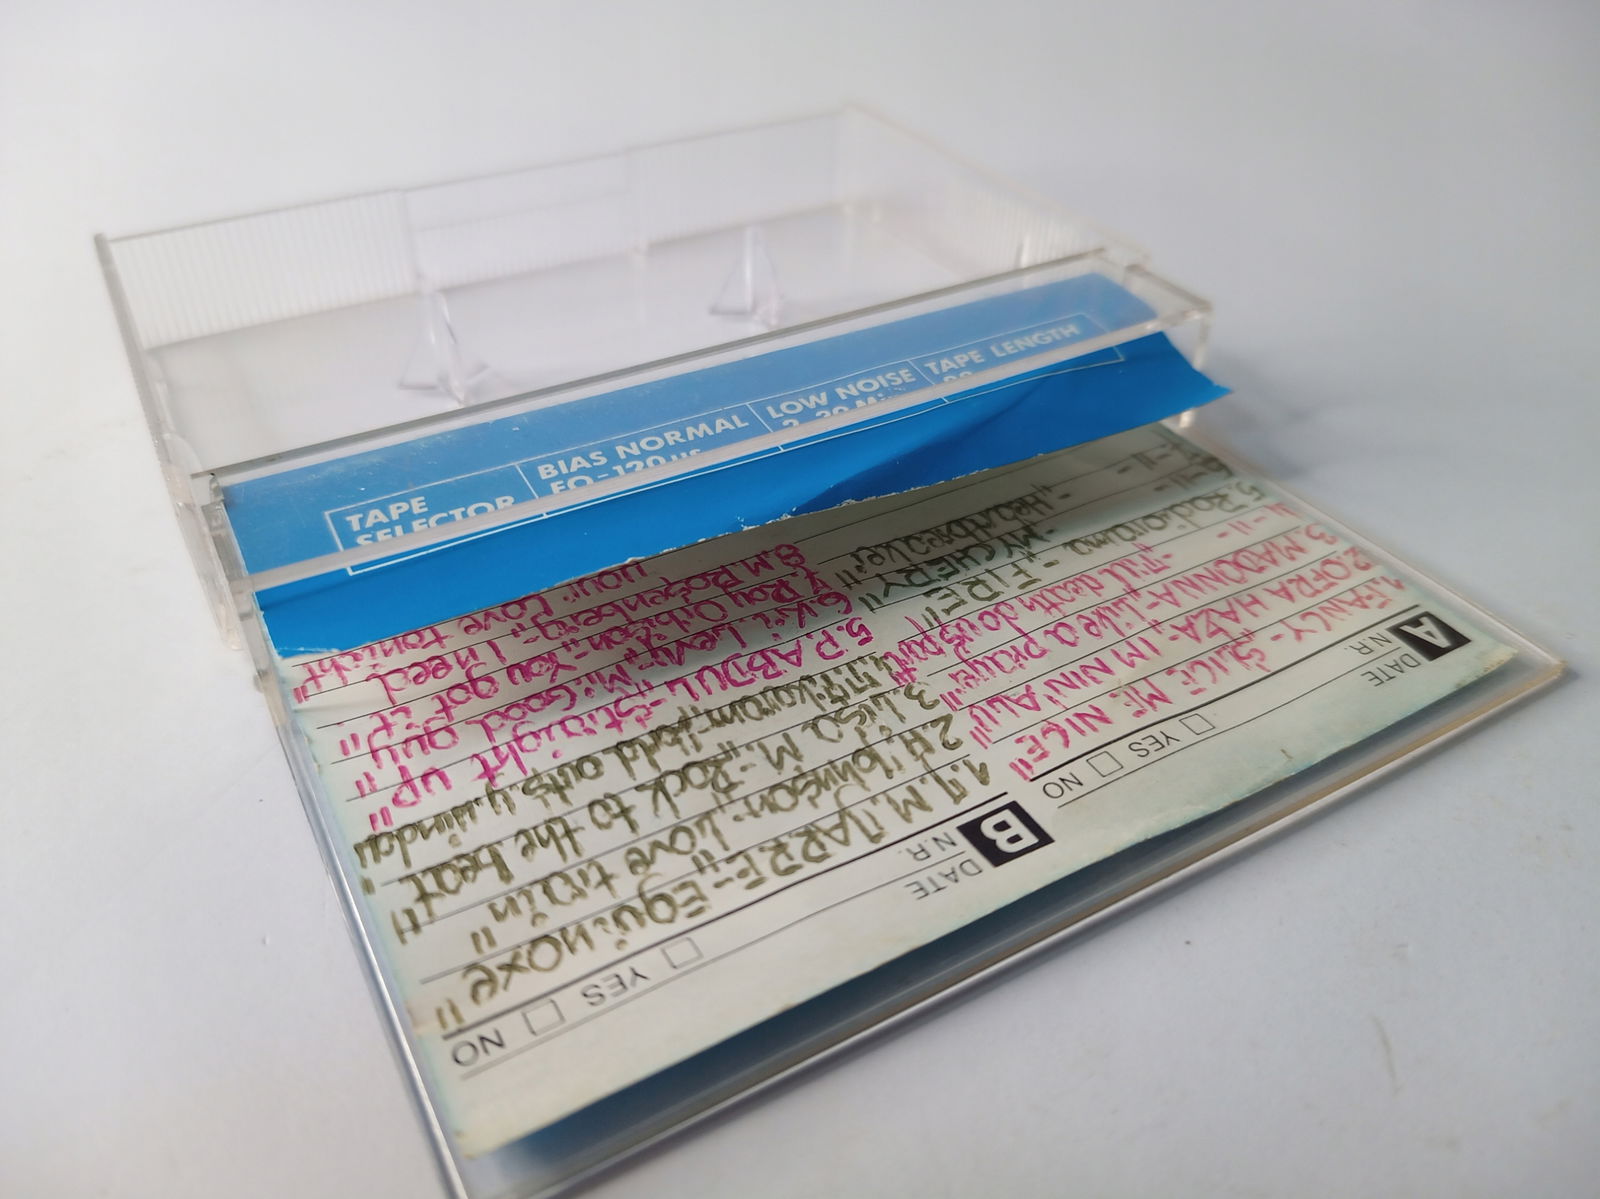 TAPE
SELECTOR
BIAS NORMAL
EQ-120µs
LOW NOISE
TAPE LENGTH
A
DATE
N.R.
YES
NO
1. FANCY - "SLICE ME NICE"
2. OFRA HAZA - IM NIN' ALU"
3. MADONNA - "Like a prayer"
4. -"- - "Till death do us part"
5. Radiorama - "FIRE"
-"- - "MY CHERY"
7. -"- - "Heartbreaver"
B
DATE
N.R.
YES
NO
1. J.M. JARRE - Equinoxe"
2. H. Johnson: "Love train"
3. Lisa M. - "Rock to the beat"
5. P. ABDUL - "Straight up"
6. Levy - "Mr. Good guy"
7. Roy Orbison: "You got it"
8. M. Rosenberg: "I need
your love tonight"